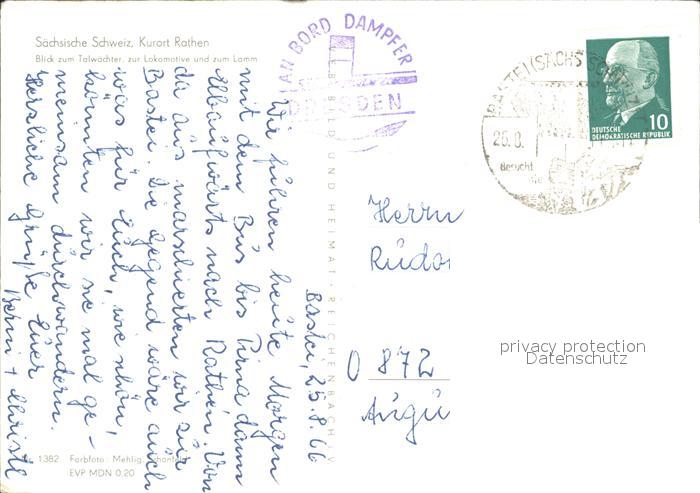 Sächsische Schweiz, Kurort Rathen
Blick zum Talwächter, zur Lokomotive und zum Lamm
AN BORD DAMPFER
DRESDEN
BASTEI (SÄCHS SCHWEIZ)
25.8.
Besucht
die
10
DEUTSCHE
DEMOKRATISCHE REPUBLIK
BILD UND HEIMAT · REICHENBACH I V
Bastei, 25.8.66
Wir fuhren heute Morgen
mit dem Bus bis Pirna dann
Elbaufwärts nach Rathen. Von
da aus marschierten wir zur
Bastei. Die Gegend wäre auch
was für Euch, wie schön,
könnten wir sie mal ge-
meinsam durchwandern.
Herzliche Grüße Euer
Berni + Christl
Herrn
Rudo
O 872
Augu
privacy protection
Datenschutz
1382 Farbfoto: Mehlig,
EVP MDN 0.20